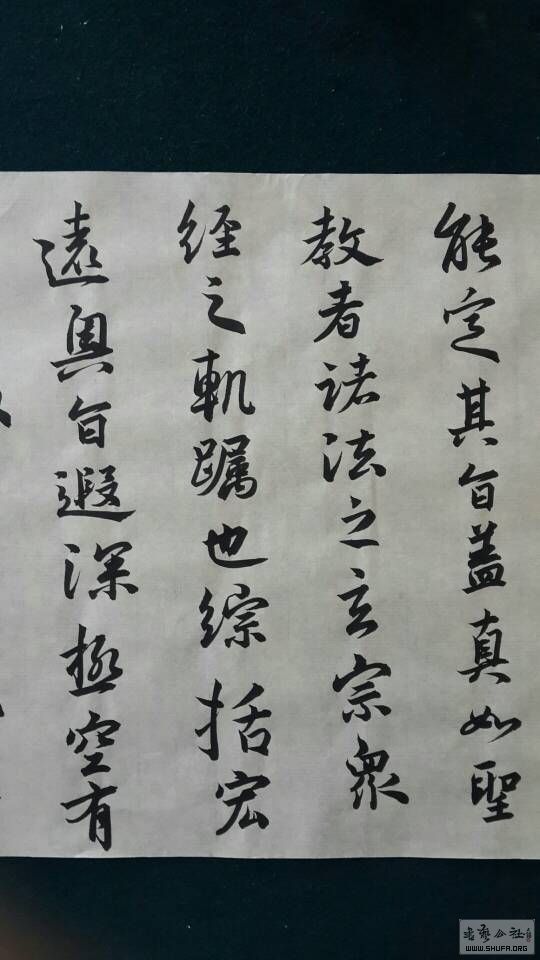 能定其旨盖真如聖
教者諸法之玄宗眾
經之軌躅也綜括宏
遠奧旨遐深極空有
WWW.SHUFA.ORG